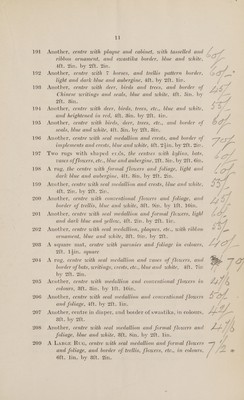 11
191 Another, centre with plaque and cabinet, with tasselled and
ribbon ornament, and swastika border, blue and white,
4ft. 3in. by 2ft. 2in.
192 Another, centre with 7 horses, and trellis pattern border,
light and dark blue and aubergine, 4ft. by 2ft. 1in.
193 Another, centre with deer, birds and trees, and border of
Chinese writings and seals, blue and white, 4ft. 3in. by
2ft. 3in.
194 Another, centre with deer, birds, trees, etc., blue and white,
and brightened in red, 4ft. 3in. by 2ft. 4in.
195 Another, centre with birds, deer, trees, etc., and border of
seals, blue and white, 4ft. 3in. by 2ft. 2in.
196 Another, centre with seal medallion and crests, and border of
implements and crests, blue and white, 4ft. 2½in. by 2ft. 2in.
197 Two rugs with shaped ends, the centres with kylins, bats,
vases of flowers, etc., blue and aubergine, 2ft. 5in. by 2ft. 6in.
198 A rug, the centre with formal flowers and foliage, light and
dark blue and aubergine, 4ft. 8in. by 2ft. 2in.
199 Another, centre with seal medallion and crests, blue and white,
4ft. 2in. by 2ft. 2in.
200 Another, centre with conventional flowers and foliage, and
border of trellis, blue and white, 3ft. 9in. by 1ft. 10in.
201 Another, centre with seal medallion and formal flowers, light
and dark blue and yellow, 4ft. 2in. by 2ft. 1in.
202 Another, centre with seal medallion, plaques, etc., with ribbon
ornament, blue and white, 3ft. 8in. by 2ft.
203 A square mat, centre with pæonies and foliage in colours,
2ft. 1½in. square
204 A rug, centre with seal medallion and vases of flowers, and
border of bats, writings, crests, etc., blue and white, 4ft. 7in.
by 2ft. 2in.
205 Another, centre with medallion and conventional flowers in
colours, 3ft. 3in. by 1ft. 10in.
206 Another, centre with seal medallion and conventional flowers
and foliage, 4ft. by 2ft. 1in.
207 Another, centre in diaper, and border of swastika, in colours,
3ft. by 2ft.
208 Another, centre with seal medallion and formal flowers and
foliage, blue and white, 3ft. 9in. by 2ft. 1in.
209 A Large Rug, centre with seal medallion and formal flowers
and foliage, and border of trellis, flowers, etc., in colours,
6ft. 1in. by 3ft. 2in.